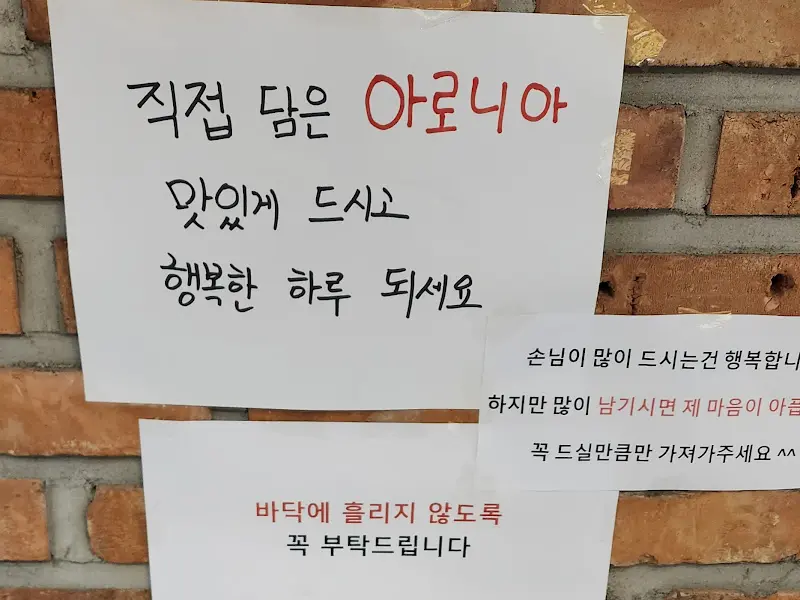 직접 담은 아로니아
맛있게 드시고
행복한 하루 되세요
손님이 많이 드시는건 행복합니
하지만 많이 남기시면 제 마음이 아픕
꼭 드실만큼만 가져가주세요 ^^
바닥에 흘리지 않도록
꼭 부탁드립니다